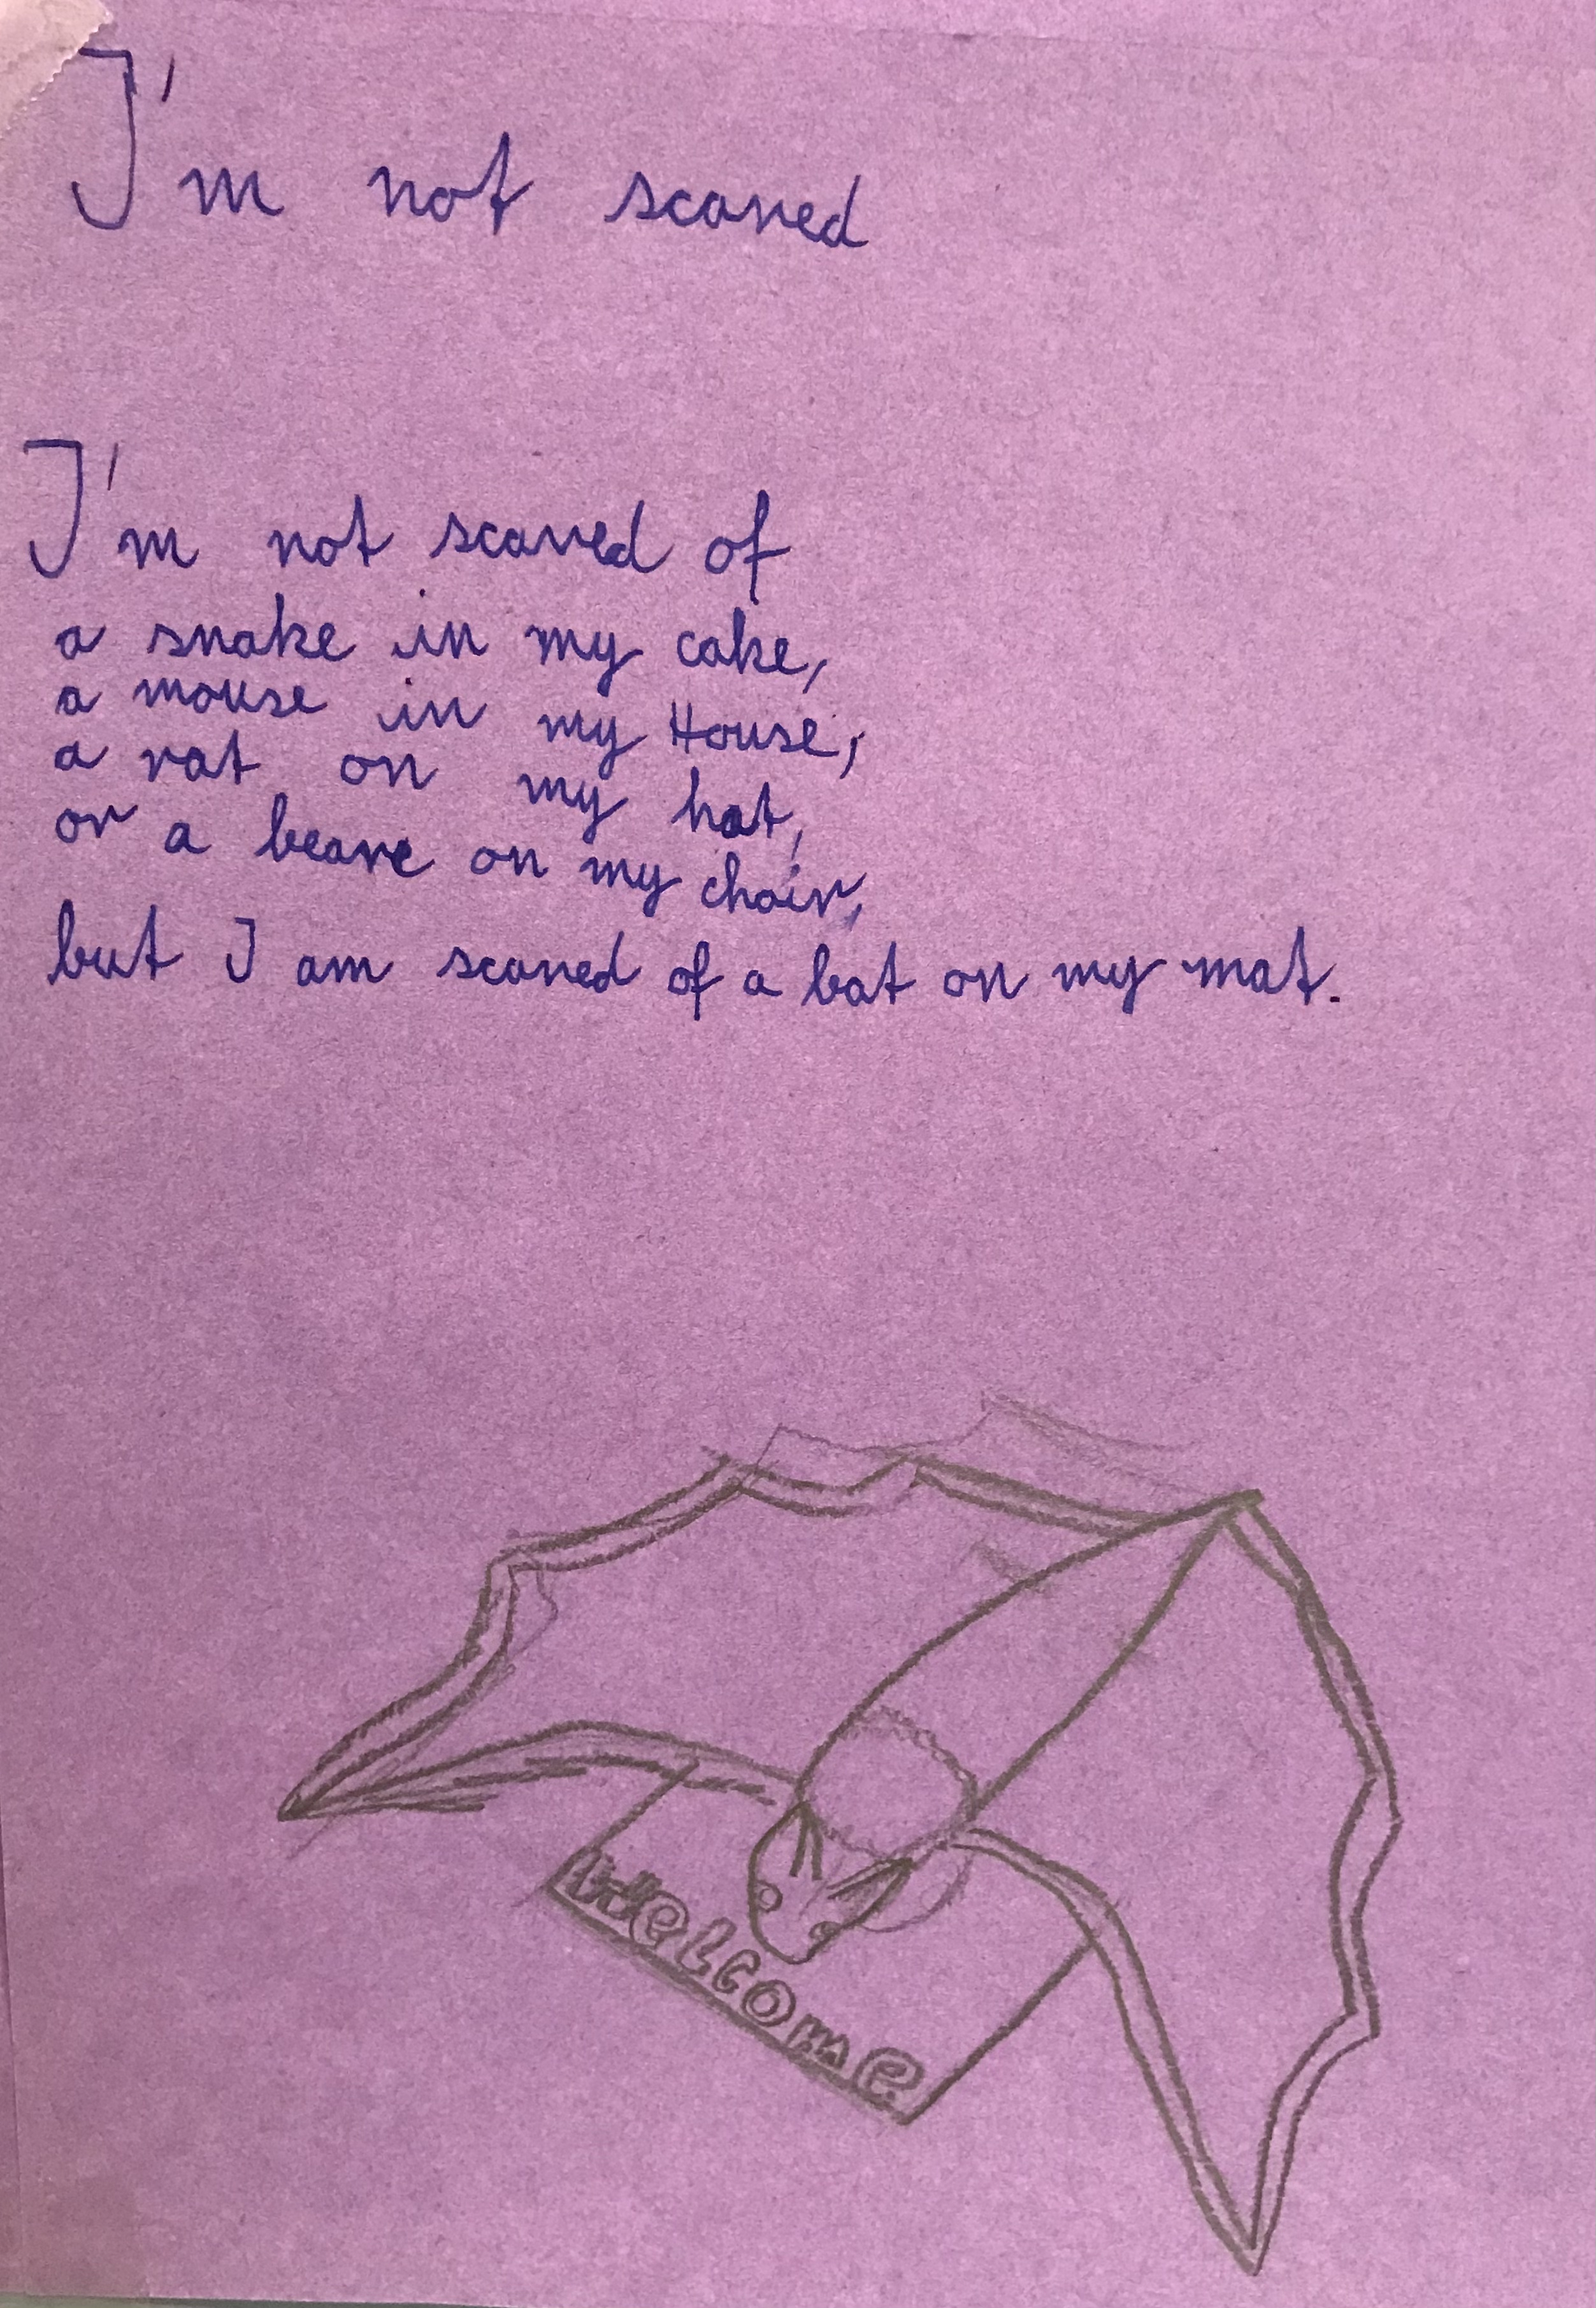 I'm not scared
I'm not scared of
a snake in my cake,
a mouse in my House,
a rat on my hat,
or a beare on my chair,
but I am scared of a bat on my mat.
Welcome